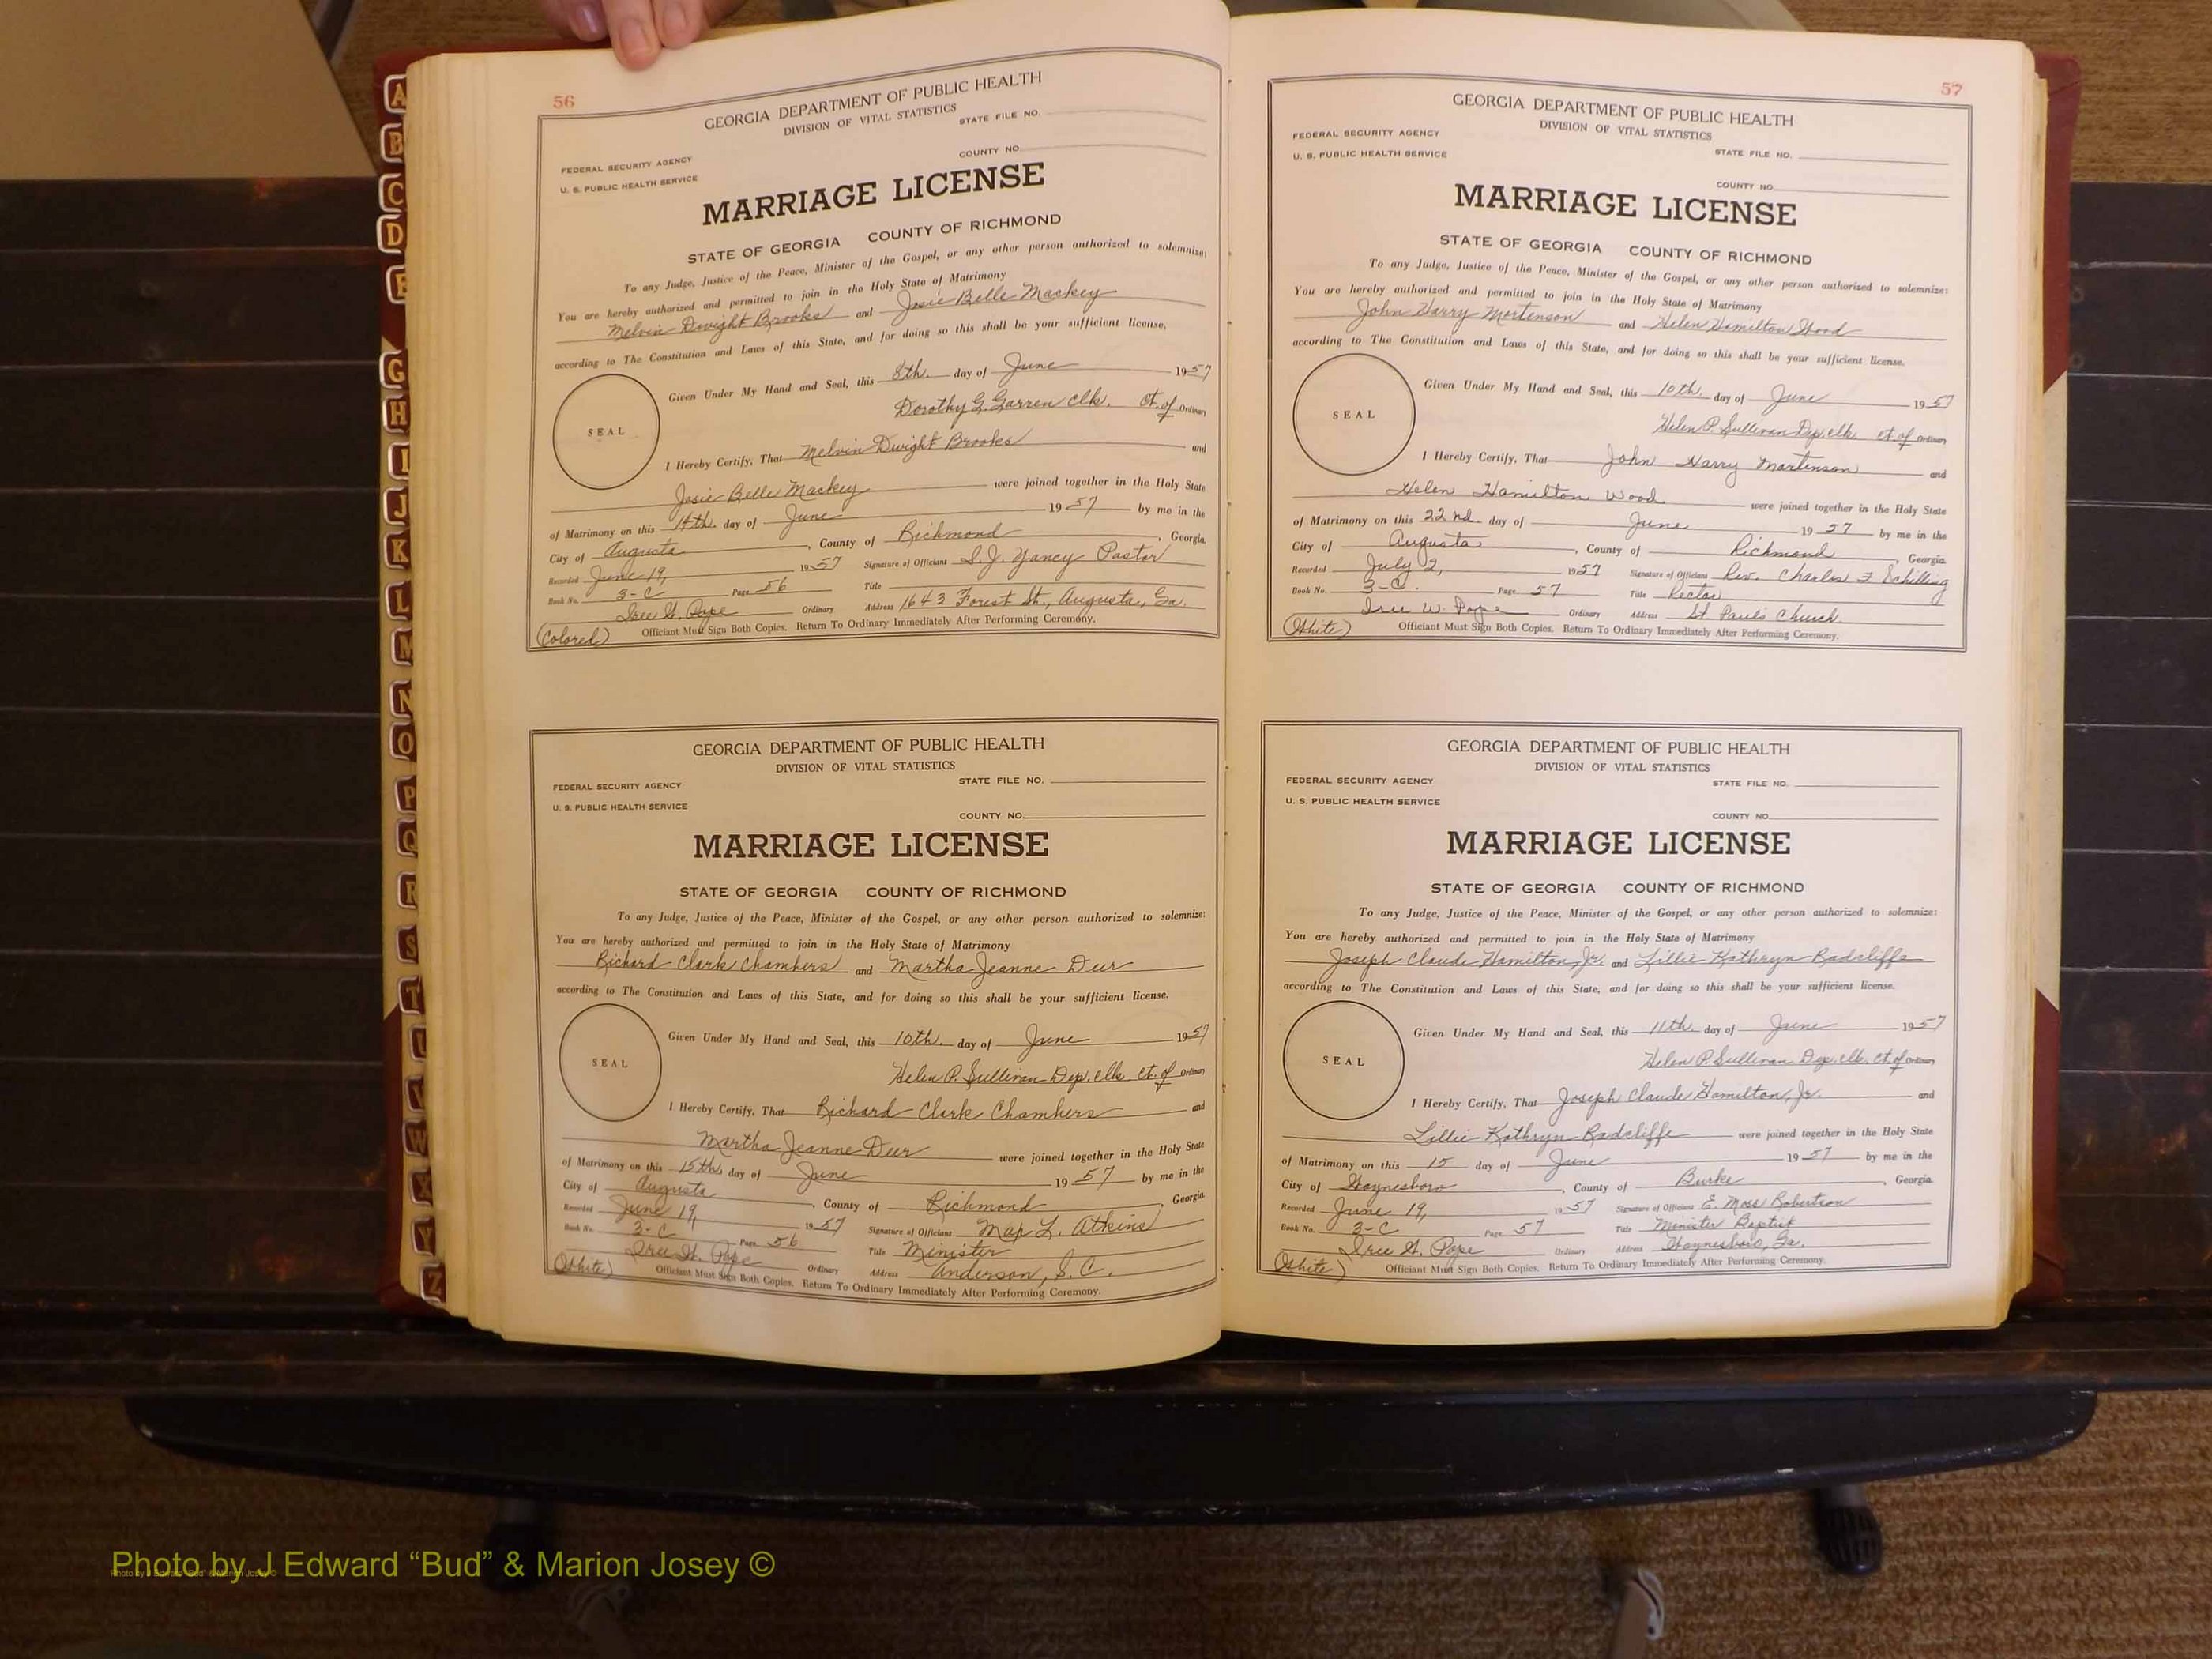 A
B
C
D
F
G
H
I
J
K
L
M
N
O
P
Q
R
S
T
W
X
Y
Z
56
GEORGIA DEPARTMENT OF PUBLIC HEALTH
DIVISION OF VITAL STATISTICS
STATE FILE NO.
FEDERAL SECURITY AGENCY
U. S. PUBLIC HEALTH SERVICE
COUNTY NO.
MARRIAGE LICENSE
STATE OF GEORGIA COUNTY OF RICHMOND
To any Judge, Justice of the Peace, Minister of the Gospel, or any other person authorized to solemnize:
You are hereby authorized and permitted to join in the Holy State of Matrimony
Melvin Dwight Brooks and Josie Belle Mackey
according to The Constitution and Laws of this State, and for doing so this shall be your sufficient license.
SEAL
Given Under My Hand and Seal, this 8th. day of June 1957
Dorothy G. Garren clk. Ct. of Ordinary
I Hereby Certify, That Melvin Dwight Brooks and
Josie Belle Mackey were joined together in the Holy State
of Matrimony on this 14th. day of June 1957 by me in the
City of Augusta, County of Richmond, Georgia.
Recorded June 19, 1957 Signature of Officiant S. J. Yancy Pastor
Book No. 3-C Page 56 Title
Ordinary Address 1643 Forest St., Augusta, Ga.
(Colored) Officiant Must Sign Both Copies. Return To Ordinary Immediately After Performing Ceremony.
GEORGIA DEPARTMENT OF PUBLIC HEALTH
DIVISION OF VITAL STATISTICS
FEDERAL SECURITY AGENCY
STATE FILE NO.
U. S. PUBLIC HEALTH SERVICE
COUNTY NO.
MARRIAGE LICENSE
STATE OF GEORGIA COUNTY OF RICHMOND
To any Judge, Justice of the Peace, Minister of the Gospel, or any other person authorized to solemnize:
You are hereby authorized and permitted to join in the Holy State of Matrimony
Richard Clark Chambers and Martha Jeanne Deer
according to The Constitution and Laws of this State, and for doing so this shall be your sufficient license.
SEAL
Given Under My Hand and Seal, this 10th. day of June 1957
Helen P. Sullivan Dep. clk. ct. of Ordinary
I Hereby Certify, That Richard Clark Chambers and
Martha Jeanne Deer were joined together in the Holy State
of Matrimony on this 15th. day of June 1957 by me in the
City of Augusta, County of Richmond, Georgia
Recorded June 19, 1957 Signature of Officiant L. Atkins
Book No. 3-C Page 56 Title Minister
Ordinary Address Anderson, S.C.
(White) Officiant Must Sign Both Copies. Return To Ordinary Immediately After Performing Ceremony.
57
GEORGIA DEPARTMENT OF PUBLIC HEALTH
DIVISION OF VITAL STATISTICS
FEDERAL SECURITY AGENCY
U. S. PUBLIC HEALTH SERVICE
STATE FILE NO.
COUNTY NO.
MARRIAGE LICENSE
STATE OF GEORGIA COUNTY OF RICHMOND
To any Judge, Justice of the Peace, Minister of the Gospel, or any other person authorized to solemnize:
You are hereby authorized and permitted to join in the Holy State of Matrimony
John Harry Mortenson and Helen Hamilton Wood
according to The Constitution and Laws of this State, and for doing so this shall be your sufficient license.
SEAL
Given Under My Hand and Seal, this 10th. day of June 1957
Helen P. Sullivan Dep. clk. ct. of Ordinary
I Hereby Certify, That John Harry Mortenson and
Helen Hamilton Wood were joined together in the Holy State
of Matrimony on this 22nd. day of June 1957 by me in the
City of Augusta, County of Richmond, Georgia
Recorded July 2, 1957 Signature of Officiant Rev. Charles F Schilling
Book No. 3-C. Page 57 Title Rector
W. Pope Ordinary Address St Paul's Church
(White) Officiant Must Sign Both Copies. Return To Ordinary Immediately After Performing Ceremony.
GEORGIA DEPARTMENT OF PUBLIC HEALTH
DIVISION OF VITAL STATISTICS
FEDERAL SECURITY AGENCY
STATE FILE NO.
U. S. PUBLIC HEALTH SERVICE
COUNTY NO.
MARRIAGE LICENSE
STATE OF GEORGIA COUNTY OF RICHMOND
To any Judge, Justice of the Peace, Minister of the Gospel, or any other person authorized to solemnize:
You are hereby authorized and permitted to join in the Holy State of Matrimony
Joseph Claude Hamilton, Jr. and Lillie Kathryn Radcliffe
according to The Constitution and Laws of this State, and for doing so this shall be your sufficient license.
SEAL
Given Under My Hand and Seal, this 11th. day of June 1957
Helen P. Sullivan Dep. clk. ct. of Ordinary
I Hereby Certify, That Joseph Claude Hamilton, Jr. and
Lillie Kathryn Radcliffe were joined together in the Holy State
of Matrimony on this 15 day of June 1957 by me in the
City of Waynesboro, County of Burke, Georgia.
Recorded June 19, 1957 Signature of Officiant E. Moss Robertson
Book No. 3-C Page 57 Title Minister Baptist
Ordinary Address Waynesboro, Ga.
(White) Officiant Must Sign Both Copies. Return To Ordinary Immediately After Performing Ceremony.
Photo by J Edward “Bud” & Marion Josey ©
Photo by J Edward “Bud” & Marion Josey ©